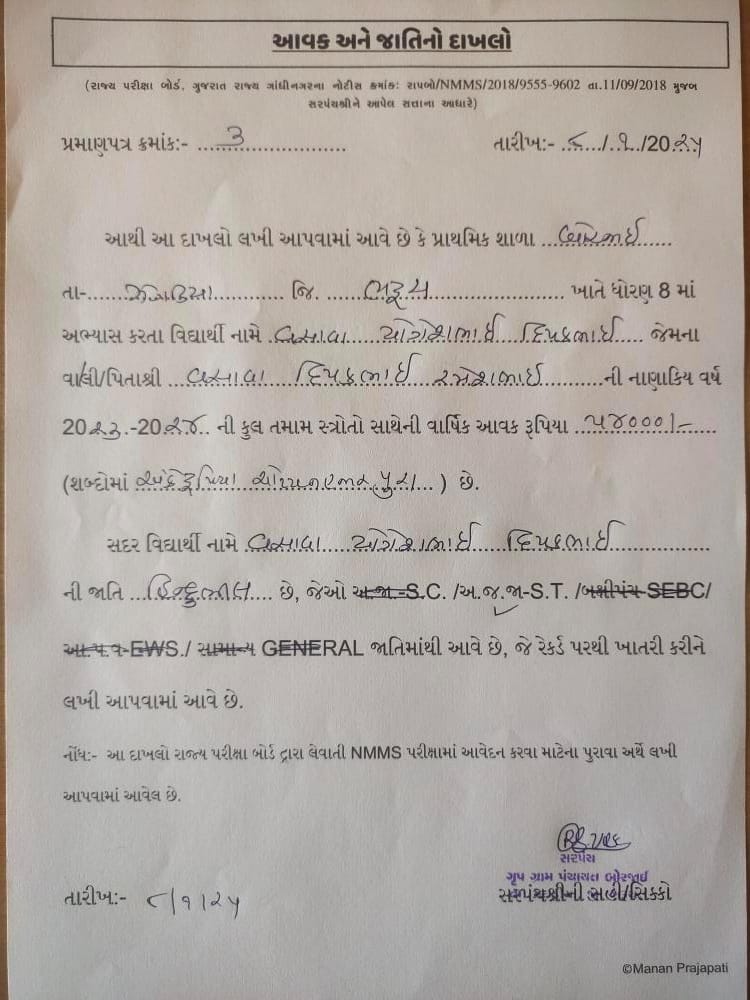 આવક અને જાતિનો દાખલો
(રાજ્ય પરીક્ષા બોર્ડ, ગુજરાત રાજ્ય ગાંધીનગરના નોટીસ ક્રમાંક: રાપબો/NMMS/2018/9555-9602 તા.11/09/2018 મુજબ
સરપંચશ્રીને આપેલ સત્તાના આધારે)
પ્રમાણપત્ર ક્રમાંક:- ....3.................... તારીખ:- ..૮../..૧../20.૨૫
આથી આ દાખલો લખી આપવામાં આવે છે કે પ્રાથમિક શાળા ...બોરજાઈ......
તા-......ઝઘડિયા............ જિ. ......ભરૂચ.................... ખાતે ધોરણ 8 માં
અભ્યાસ કરતા વિદ્યાર્થી નામે .વસાવા યોગેશભાઈ દિપકભાઈ.... જેમના
વાલી/પિતાશ્રી ...વસાવા દિપકભાઈ રમેશભાઈ.........ની નાણાકિય વર્ષ
20૨૩.-20૨૪.. ની કુલ તમામ સ્ત્રોતો સાથેની વાર્ષિક આવક રૂપિયા ..૫૪૦૦૦/-...
(શબ્દોમાં .અંકે રૂપિયા ચોપન હજાર પુરા...) છે.
સદર વિદ્યાર્થી નામે .વસાવા યોગેશભાઈ દિપકભાઈ............
ની જાતિ ..હિન્દુભીલ.... છે, જેઓ અ.જા.-S.C. /અ.જ.જા-S.T. /બક્ષીપંચ SEBC/
આ.પ.વ-EWS./ સામાન્ય GENERAL જાતિમાંથી આવે છે, જે રેકર્ડ પરથી ખાતરી કરીને
લખી આપવામાં આવે છે.
નોંધ:- આ દાખલો રાજ્ય પરીક્ષા બોર્ડ દ્વારા લેવાતી NMMS પરીક્ષામાં આવેદન કરવા માટેના પુરાવા અર્થે લખી
આપવામાં આવેલ છે.
સરપંચ
ગૃપ ગ્રામ પંચાયત બોરજાઈ
તારીખ:- ૮/૧/૨૫ સરપંચશ્રીની સહી/સિક્કો
©Manan Prajapati